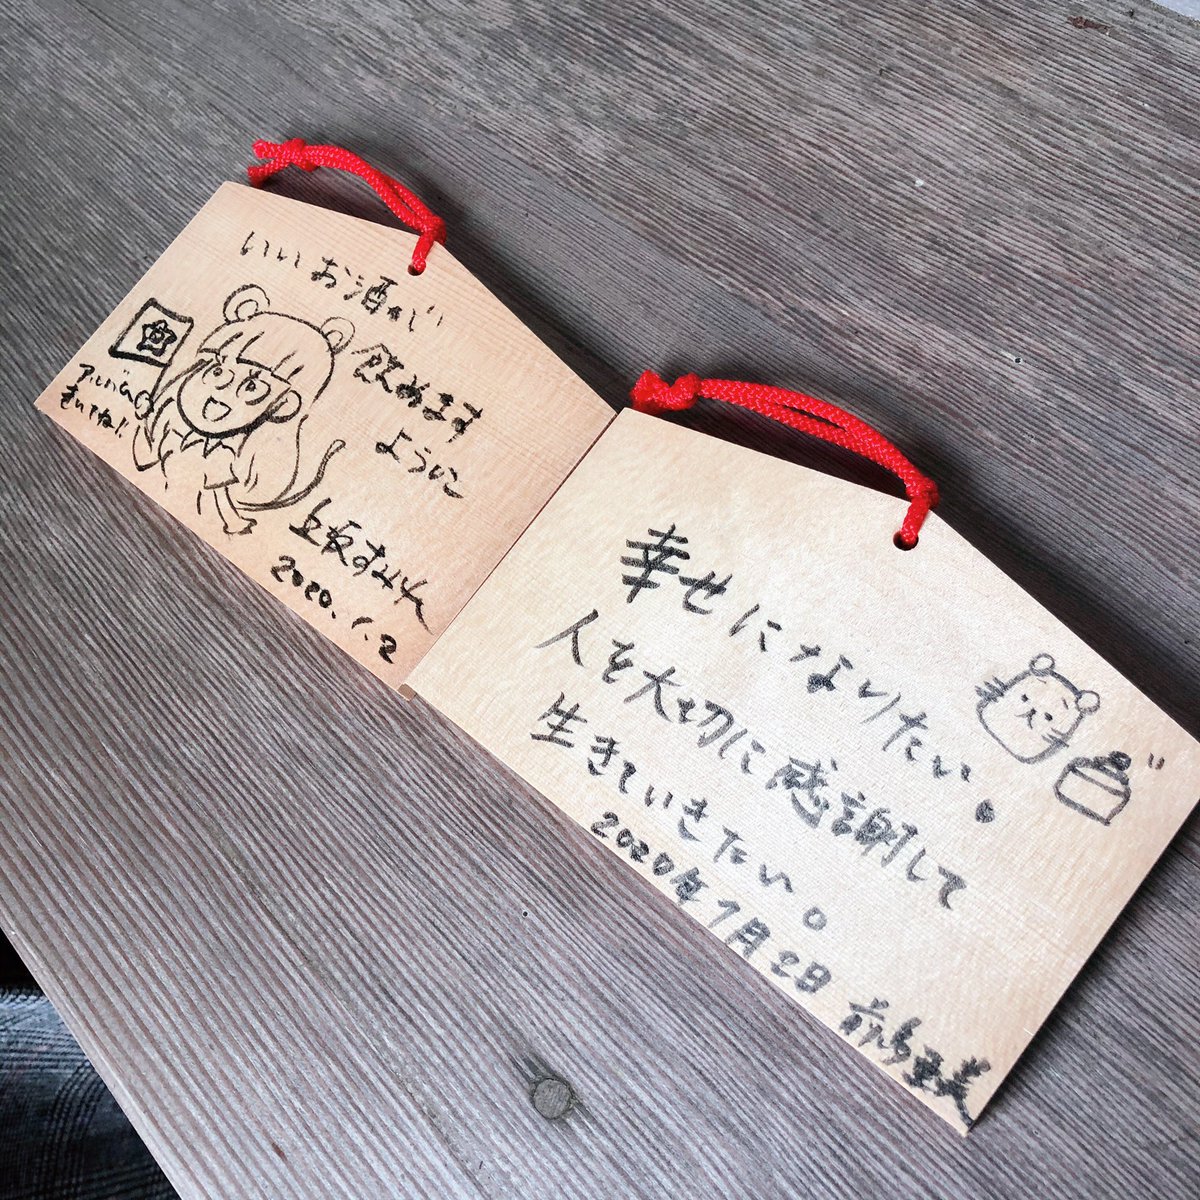 いいお酒がい
飲めます
ように
アルバム
きいてね!!
上坂すみれ
2020.1.2
幸せになりたい。
人を大切に感謝して
生きていきたい。
2020年1月2日
前島亜美